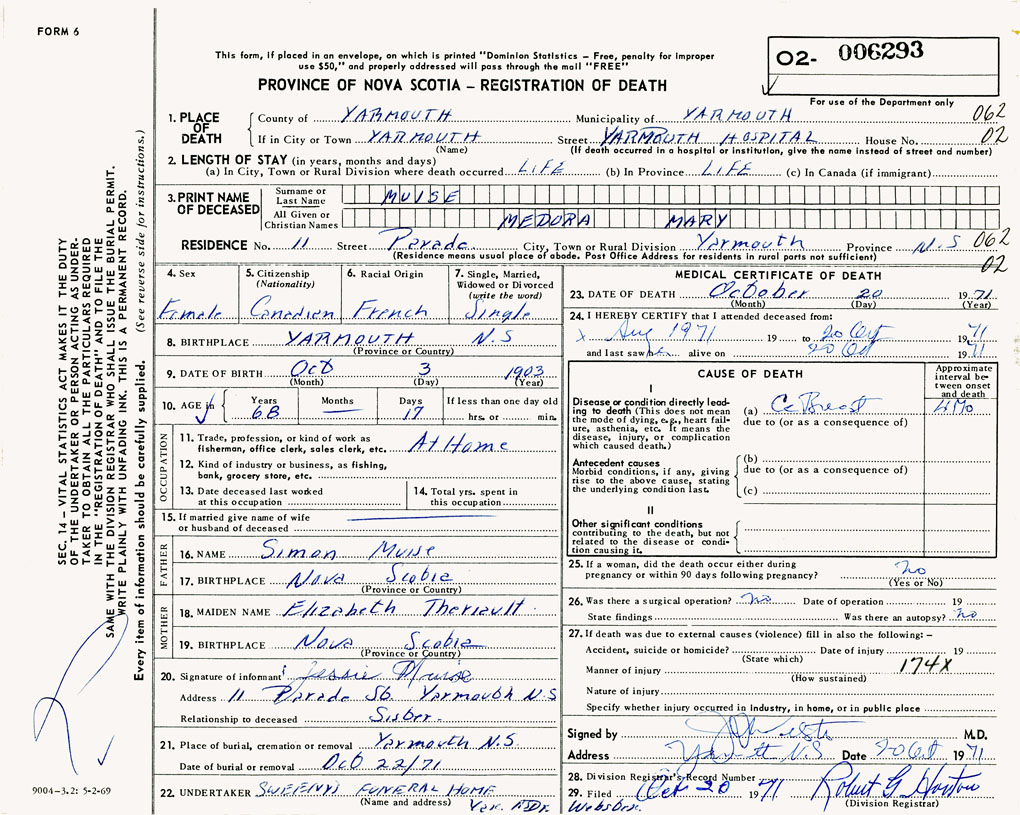 FORM 6
This form, if placed in an envelope, on which is printed "Dominion Statistics – Free, penalty for improper
use $50," and properly addressed will pass through the mail "FREE"
PROVINCE OF NOVA SCOTIA – REGISTRATION OF DEATH
02- 006293
For use of the Department only
1. PLACE OF DEATH County of YARMOUTH Municipality of YARMOUTH 062
If in City or Town YARMOUTH Street YARMOUTH HOSPITAL House No. 02
(Name) (If death occurred in a hospital or institution, give the name instead of street and number)
2. LENGTH OF STAY (in years, months and days)
(a) In City, Town or Rural Division where death occurred LIFE (b) In Province LIFE (c) In Canada (if immigrant)
3. PRINT NAME OF DECEASED Surname or Last Name MUISE
All Given or Christian Names MEDORA MARY
RESIDENCE No. 11 Street Parade City, Town or Rural Division Yarmouth Province N.S 062
(Residence means usual place of abode. Post Office Address for residents in rural parts not sufficient) 02
4. Sex Female
5. Citizenship (Nationality) Canadian
6. Racial Origin French
7. Single, Married, Widowed or Divorced (write the word) Single
8. BIRTHPLACE YARMOUTH N.S
(Province or Country)
9. DATE OF BIRTH Oct 3 1903
(Month) (Day) (Year)
10. AGE in Years 68 Months — Days 17 If less than one day old hrs. or min.
OCCUPATION
11. Trade, profession, or kind of work as fisherman, office clerk, sales clerk, etc. At Home
12. Kind of industry or business, as fishing, bank, grocery store, etc.
13. Date deceased last worked at this occupation
14. Total yrs. spent in this occupation
15. If married give name of wife or husband of deceased
FATHER
16. NAME Simon Muise
17. BIRTHPLACE Nova Scotia
(Province or Country)
MOTHER
18. MAIDEN NAME Elizabeth Theriault
19. BIRTHPLACE Nova Scotia
(Province or Country)
20. Signature of informant Jessie Muise
Address 11 Parade St. Yarmouth N.S
Relationship to deceased Sister
21. Place of burial, cremation or removal Yarmouth N.S.
Date of burial or removal Oct 22/71
22. UNDERTAKER SWEENY'S FUNERAL HOME
(Name and address)
MEDICAL CERTIFICATE OF DEATH
23. DATE OF DEATH October 20 1971
(Month) (Day) (Year)
24. I HEREBY CERTIFY that I attended deceased from:
x Aug 1971 19 to 20 Oct 1971
and last saw her alive on 20 Oct 1971
CAUSE OF DEATH
Approximate interval between onset and death
I
Disease or condition directly leading to death (This does not mean the mode of dying, e.g., heart failure, asthenia, etc. It means the disease, injury, or complication which caused death.)
(a) Ca Breast 4 Mo
due to (or as a consequence of)
Antecedent causes
Morbid conditions, if any, giving rise to the above cause, stating the underlying condition last.
(b)
due to (or as a consequence of)
(c)
II
Other significant conditions
contributing to the death, but not related to the disease or condition causing it.
25. If a woman, did the death occur either during pregnancy or within 90 days following pregnancy? No
(Yes or No)
26. Was there a surgical operation? no Date of operation 19
State findings Was there an autopsy? no
27. If death was due to external causes (violence) fill in also the following: –
Accident, suicide or homicide? Date of injury 19
(State which)
Manner of injury 174X
(How sustained)
Nature of injury
Specify whether injury occurred in Industry, in home, or in public place
Signed by M.D.
Address Yarmouth N.S Date 20 Oct 1971
28. Division Registrar's Record Number
29. Filed Oct 20 1971 Robert G Horton
(Division Registrar)
Webster.
SEC. 14 – VITAL STATISTICS ACT MAKES IT THE DUTY
OF THE UNDERTAKER OR PERSON ACTING AS UNDER-
TAKER TO OBTAIN ALL THE PARTICULARS REQUIRED
IN THE "REGISTRATION OF DEATH" AND TO FILE THE
SAME WITH THE DIVISION REGISTRAR WHO SHALL ISSUE THE BURIAL PERMIT.
WRITE PLAINLY WITH UNFADING INK. THIS IS A PERMANENT RECORD.
Every item of information should be carefully supplied. (See reverse side for instructions.)
9004-3.2: 5-2-69